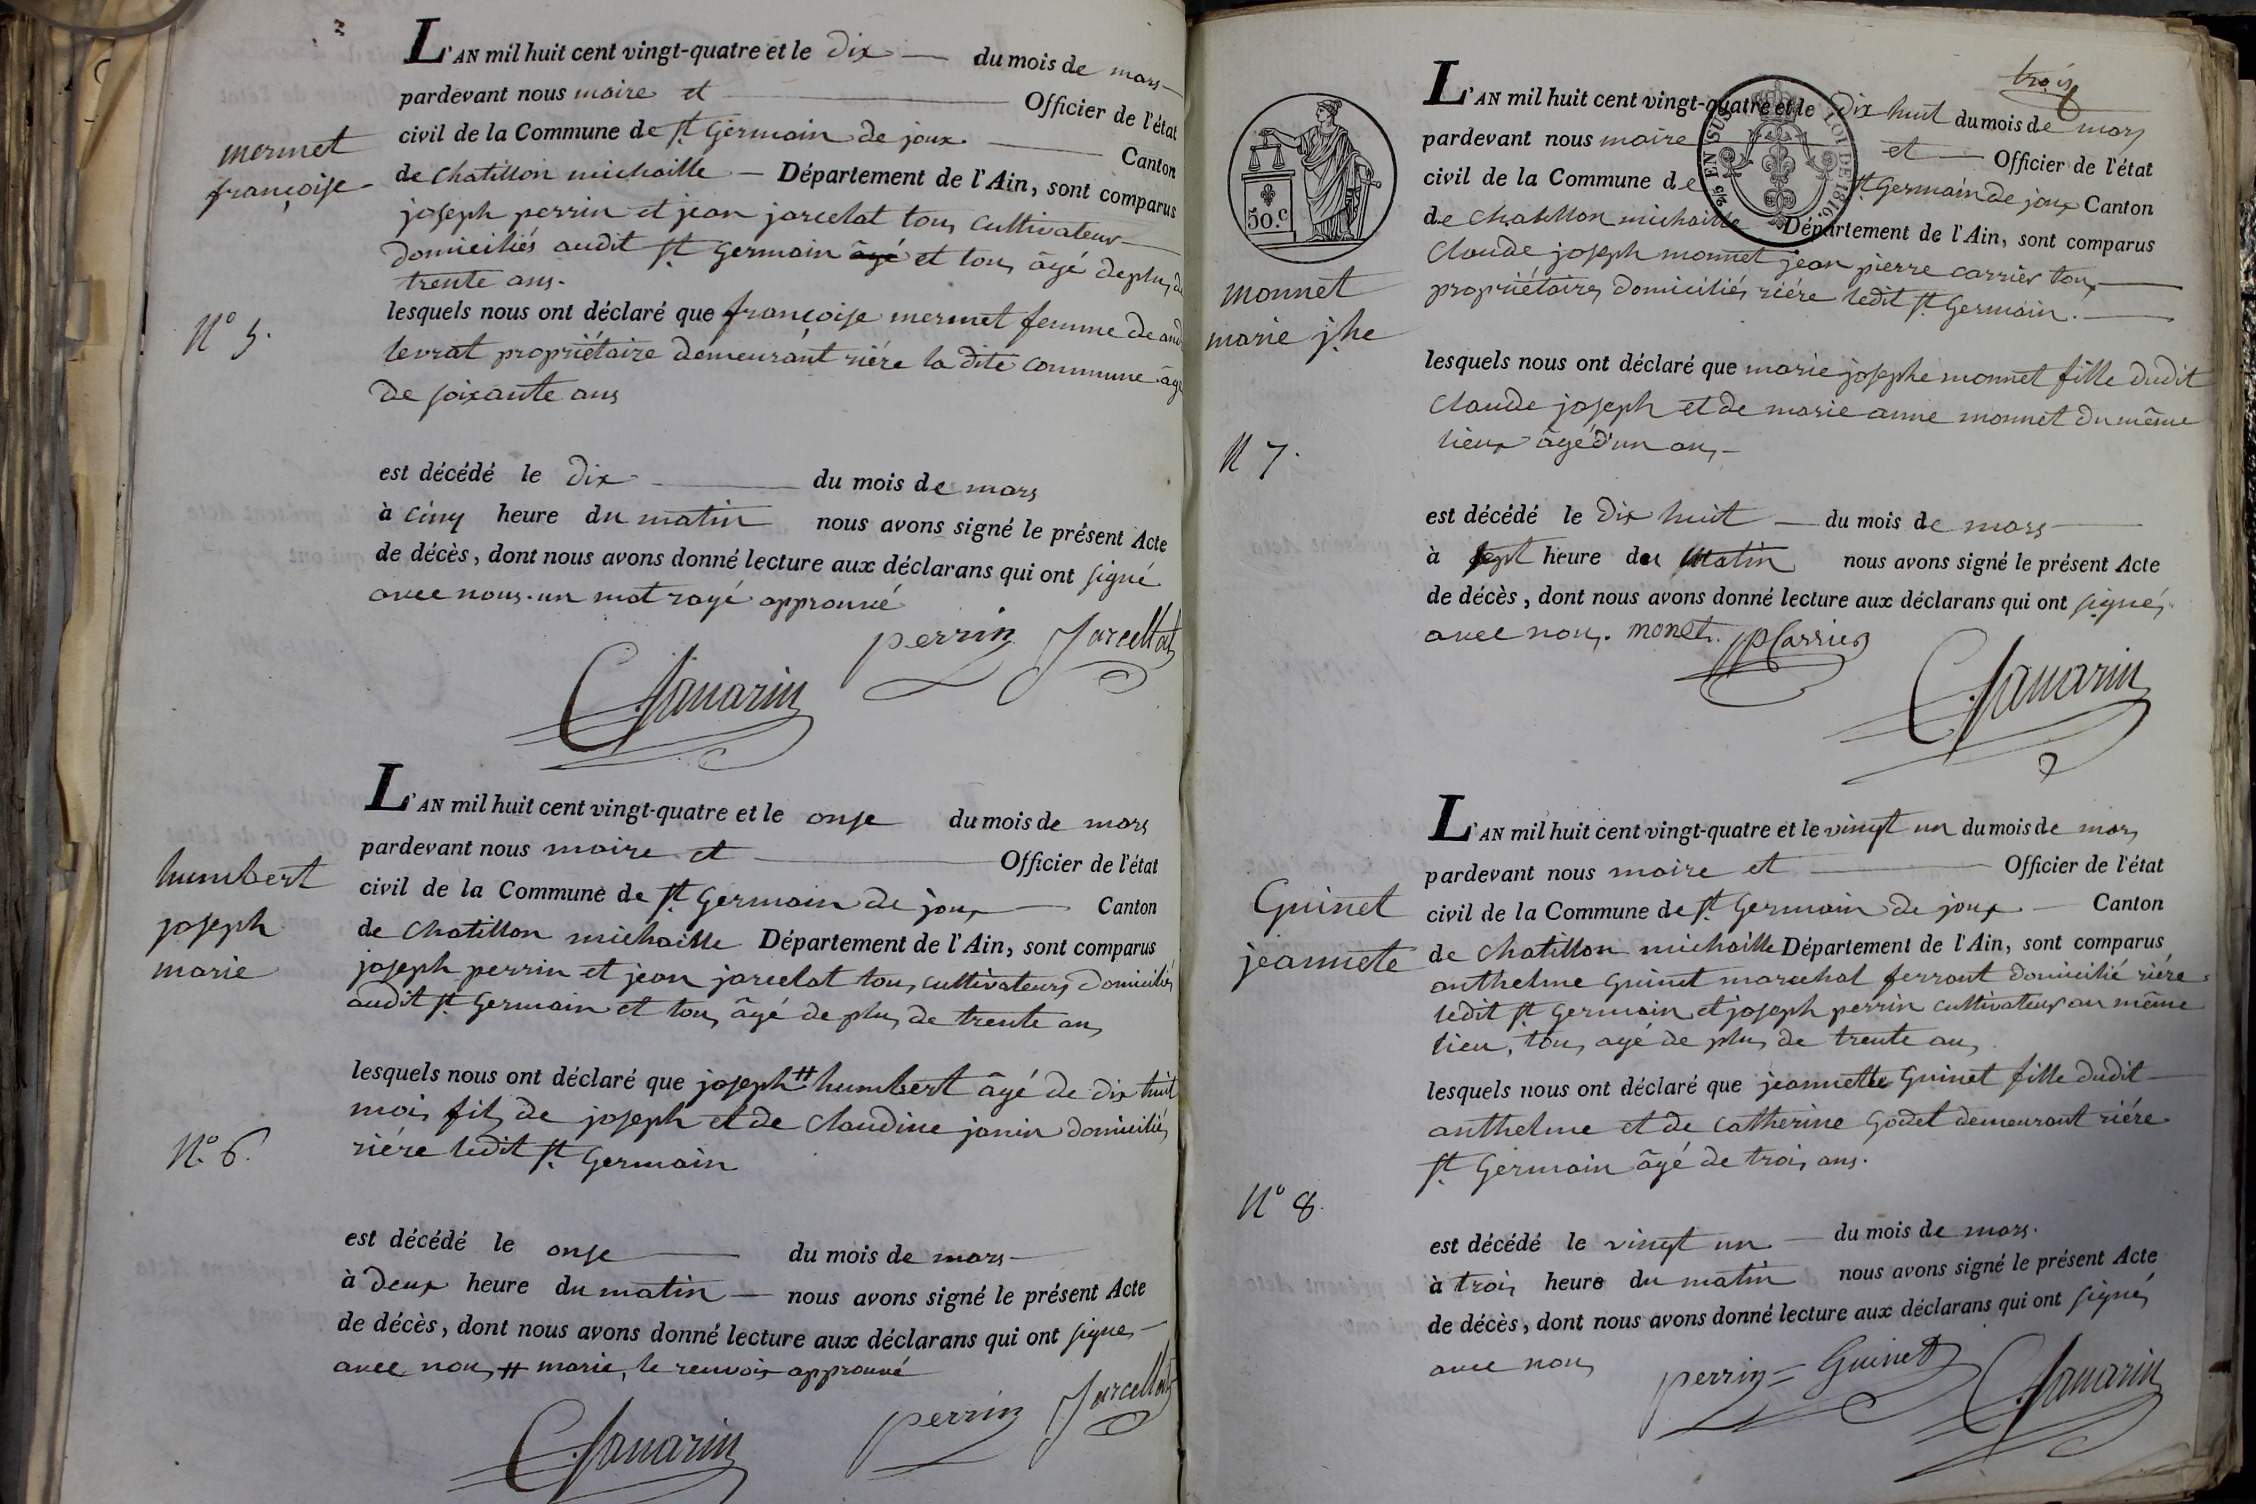 L'AN mil huit cent vingt-quatre et le dix du mois de mars
pardevant nous maire et Officier de l'état
civil de la Commune de St. Germain de joux Canton
de chatillon michaille Département de l'Ain, sont comparus
joseph perrin et jean jarcelat tous cultivateurs
domiciliés audit St. Germain âgé et tous âgé de plus de
trente ans.
mermet
françoise
N° 5.
lesquels nous ont déclaré que françoise mermet femme de
levrat propriétaire demeurant riére la dite commune âgé
de soixante ans
est décédé le dix du mois de mars
à cinq heure du matin nous avons signé le présent Acte
de décès, dont nous avons donné lecture aux déclarans qui ont signé
avec nous. un mot rayé approuvé
perrin Jarcellat
L'AN mil huit cent vingt-quatre et le onse du mois de mars
pardevant nous maire et Officier de l'état
civil de la Commune de St. Germain de joux Canton
de chatillon michaille Département de l'Ain, sont comparus
joseph perrin et jean jarcelat tous cultivateurs domiciliés
audit St. Germain et tous âgé de plus de trente ans
humbert
joseph
marie
N°. 6.
lesquels nous ont déclaré que joseph # humbert âgé de dix huit
mois fils de joseph et de claudine janin domiciliés
riére ledit St. Germain
est décédé le onse du mois de mars
à deux heure du matin nous avons signé le présent Acte
de décès, dont nous avons donné lecture aux déclarans qui ont signés
avec nous # marie, le renvois approuvé
perrin Jarcellat
trois
L'AN mil huit cent vingt-quatre et le dix huit du mois de mars
pardevant nous maire et Officier de l'état
civil de la Commune de St. Germain de joux Canton
de chatillon michaille Département de l'Ain, sont comparus
claude joseph monnet jean pierre carrier tous
propriétaires domiciliés riére ledit St. Germain.
50.c
EN SUS
LOI DE 1816.
monnet
marie jhe
N 7.
lesquels nous ont déclaré que marie josephe monnet fille dudit
claude joseph et de marie anne monnet du même
lieux âgé d'un ans
est décédé le dix huit du mois de mars
à sept heure du matin nous avons signé le présent Acte
de décès, dont nous avons donné lecture aux déclarans qui ont signés
avec nous. monet. JPCarrier
L'AN mil huit cent vingt-quatre et le vingt un du mois de mars
pardevant nous maire et Officier de l'état
civil de la Commune de St. Germain de joux Canton
de chatillon michaille Département de l'Ain, sont comparus
anthelme Guinet marechal ferrant domicilié riére
ledit St. Germain et joseph perrin cultivateur au même
lieu, tous agé de plus de trente ans
Guinet
jeannete
N° 8.
lesquels nous ont déclaré que jeannette Guinet fille dudit
anthelme et de catherine Godet demeurant riére
St. Germain âgé de trois ans.
est décédé le vingt un du mois de mars.
à trois heure du matin nous avons signé le présent Acte
de décès, dont nous avons donné lecture aux déclarans qui ont signés
avec nous perrin = Guinet